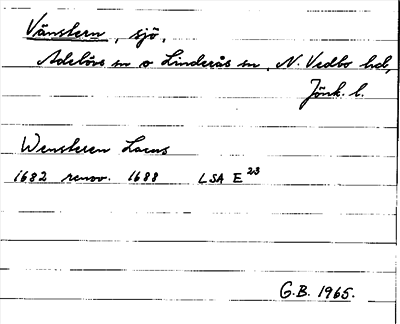 Vänstern, sjö,
Adelövs sn o Linderås sn, N. Vedbo hd,
Jönk. l.
Wensteren Lacus
1682 renov. 1688 LSA E 23
G.B. 1965.